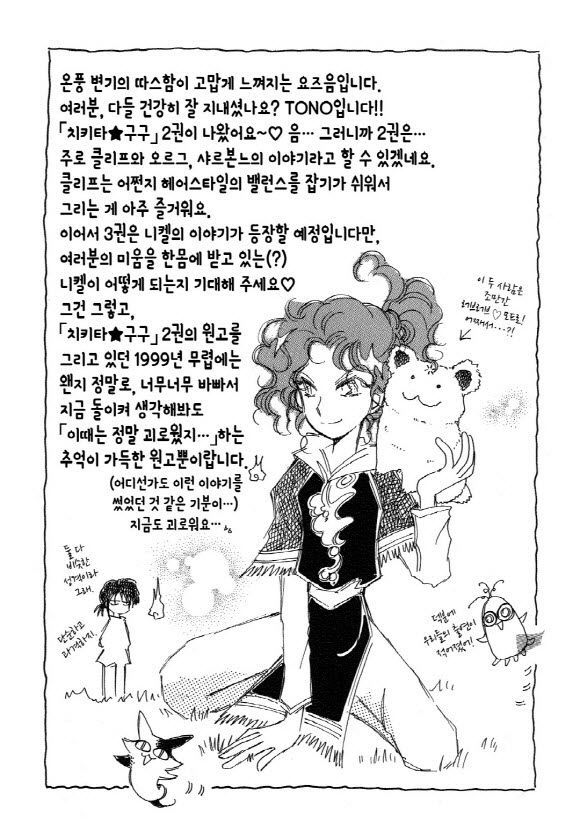 온풍 변기의 따스함이 고맙게 느껴지는 요즈음입니다.
여러분, 다들 건강히 잘 지내셨나요? TONO입니다!!
「치키타★구구」2권이 나왔어요~♡ 음… 그러니까 2권은…
주로 클리프와 오르그, 샤르본느의 이야기라고 할 수 있겠네요.
클리프는 어쩐지 헤어스타일의 밸런스를 잡기가 쉬워서
그리는 게 아주 즐거워요.
이어서 3권은 니켈의 이야기가 등장할 예정입니다만,
여러분의 미움을 한몸에 받고 있는(?)
니켈이 어떻게 되는지 기대해 주세요♡
그건 그렇고,
「치키타★구구」2권의 원고를
그리고 있던 1999년 무렵에는
왠지 정말로, 너무너무 바빠서
지금 돌이켜 생각해봐도
「이때는 정말 괴로웠지…」하는
추억이 가득한 원고뿐이랍니다.
(어디선가도 이런 이야기를
썼었던 것 같은 기분이…)
지금도 괴로워요…
이 두 사람은
조만간
러브러브♡모드로!
어째서…?!
둘 다
비슷한
성격이라
그래.
단순하고
과격하지.
덕분에
우리들의 출연이
적어졌어!